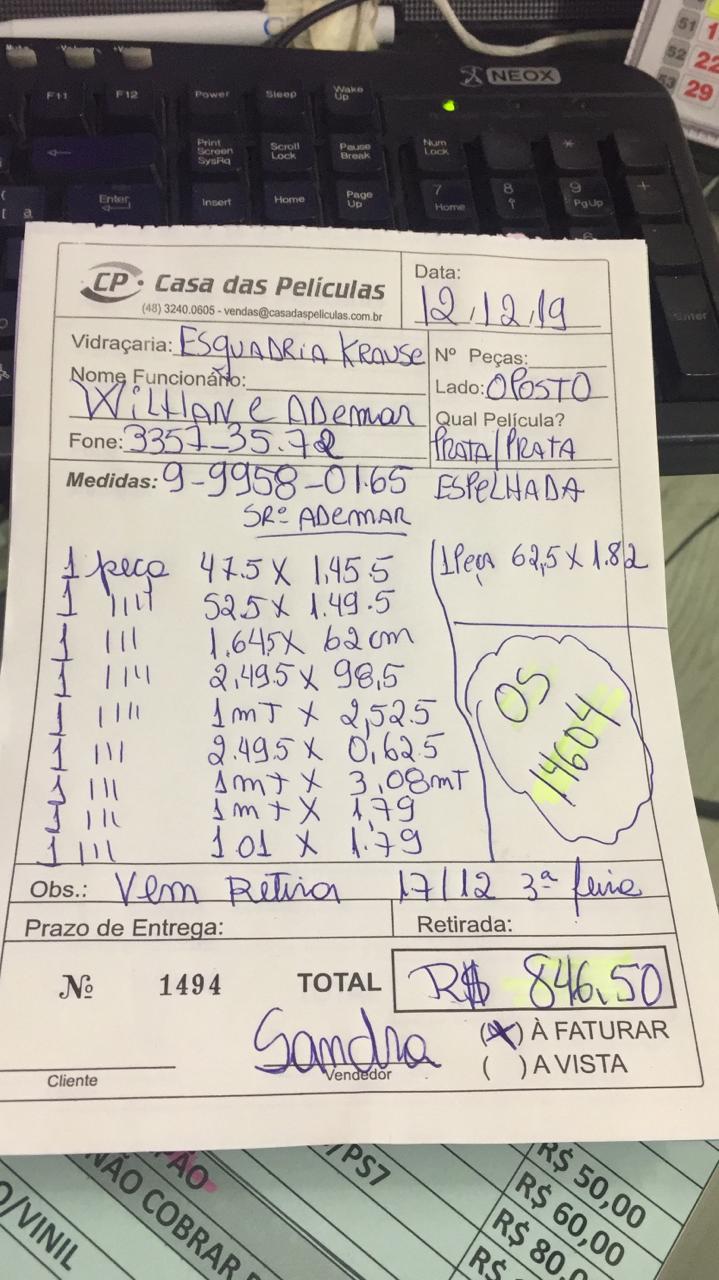 NEOX
F11 F12 Power Sleep Wake Up
Print Screen SysRq Scroll Lock Pause Break Num Lock *
Enter Insert Home Page Up 7 Home 8 9 PgUp +
Enter
51 1
52 22
53 29
CP Casa das Películas
(48) 3240.0605 - vendas@casadaspeliculas.com.br
Data:
12.12.19
Vidraçaria: ESQUADRIA KRAUSE
Nº Peças:
Nome Funcionário:
WILHAN e ADemAR
Lado: OPOSTO
Qual Película?
Fone: 3357-35.72
PRATA/PRATA
Medidas: 9-9958-0165 ESPELHADA
SRº ADEMAR
1 peça 47.5 X 1,45.5
1 Peça 62,5 X 1.82
1 1111 52.5 X 1.49.5
1 111 1.645 X 62 cm
1 1111 2,49.5 X 98,5
1 1111 1 mT X 2,52.5
1 111 2.495 X 0,62.5
1 111 1 mT X 3,08 mT
1 111 1 mt X 1,79
1 111 1 01 X 1.79
OS
14604
Obs.: Vem Retirar 17/12 3ª feira
Prazo de Entrega:
Retirada:
Nº 1494 TOTAL R$ 846,50
Sandra
Vendedor
Cliente
(X) À FATURAR
( ) A VISTA
/PS7
NÃO COBRAR
O/VINIL
R$ 50,00
R$ 60,00
R$ 80,0